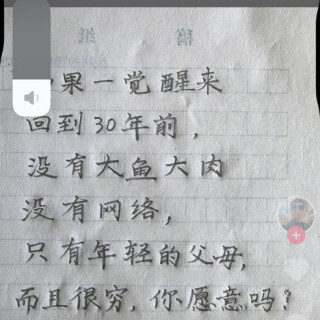 果一觉醒来
回到30年前，
没有大鱼大肉
没有网络，
只有年轻的父母，
而且很穷，你愿意吗？